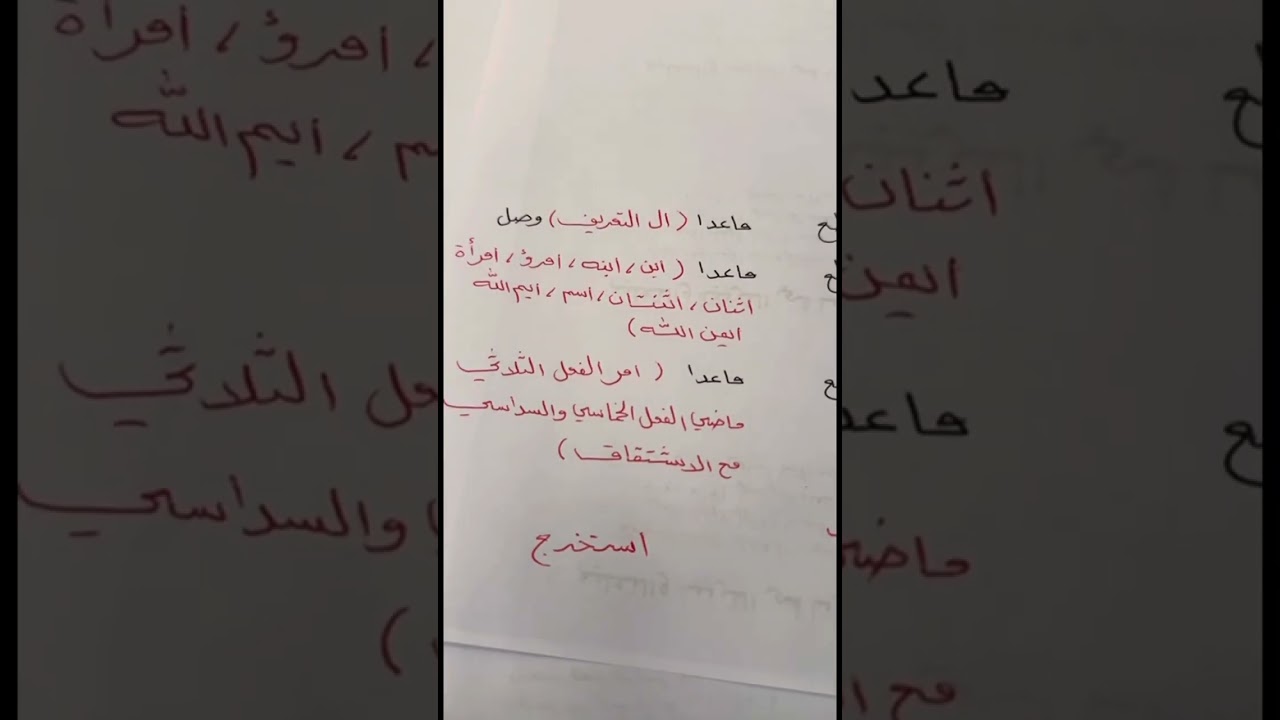 ماعدا (ال التعريف) وصل
ماعدا (ابن، ابنه، امرؤ، امرأة
اثنان، اثنتان، اسم، ايم الله
ايمن الله)
ماعدا (امر الفعل الثلاثي
ماضي الفعل الخماسي والسداسي
مع الاشتقاق)
استخرج